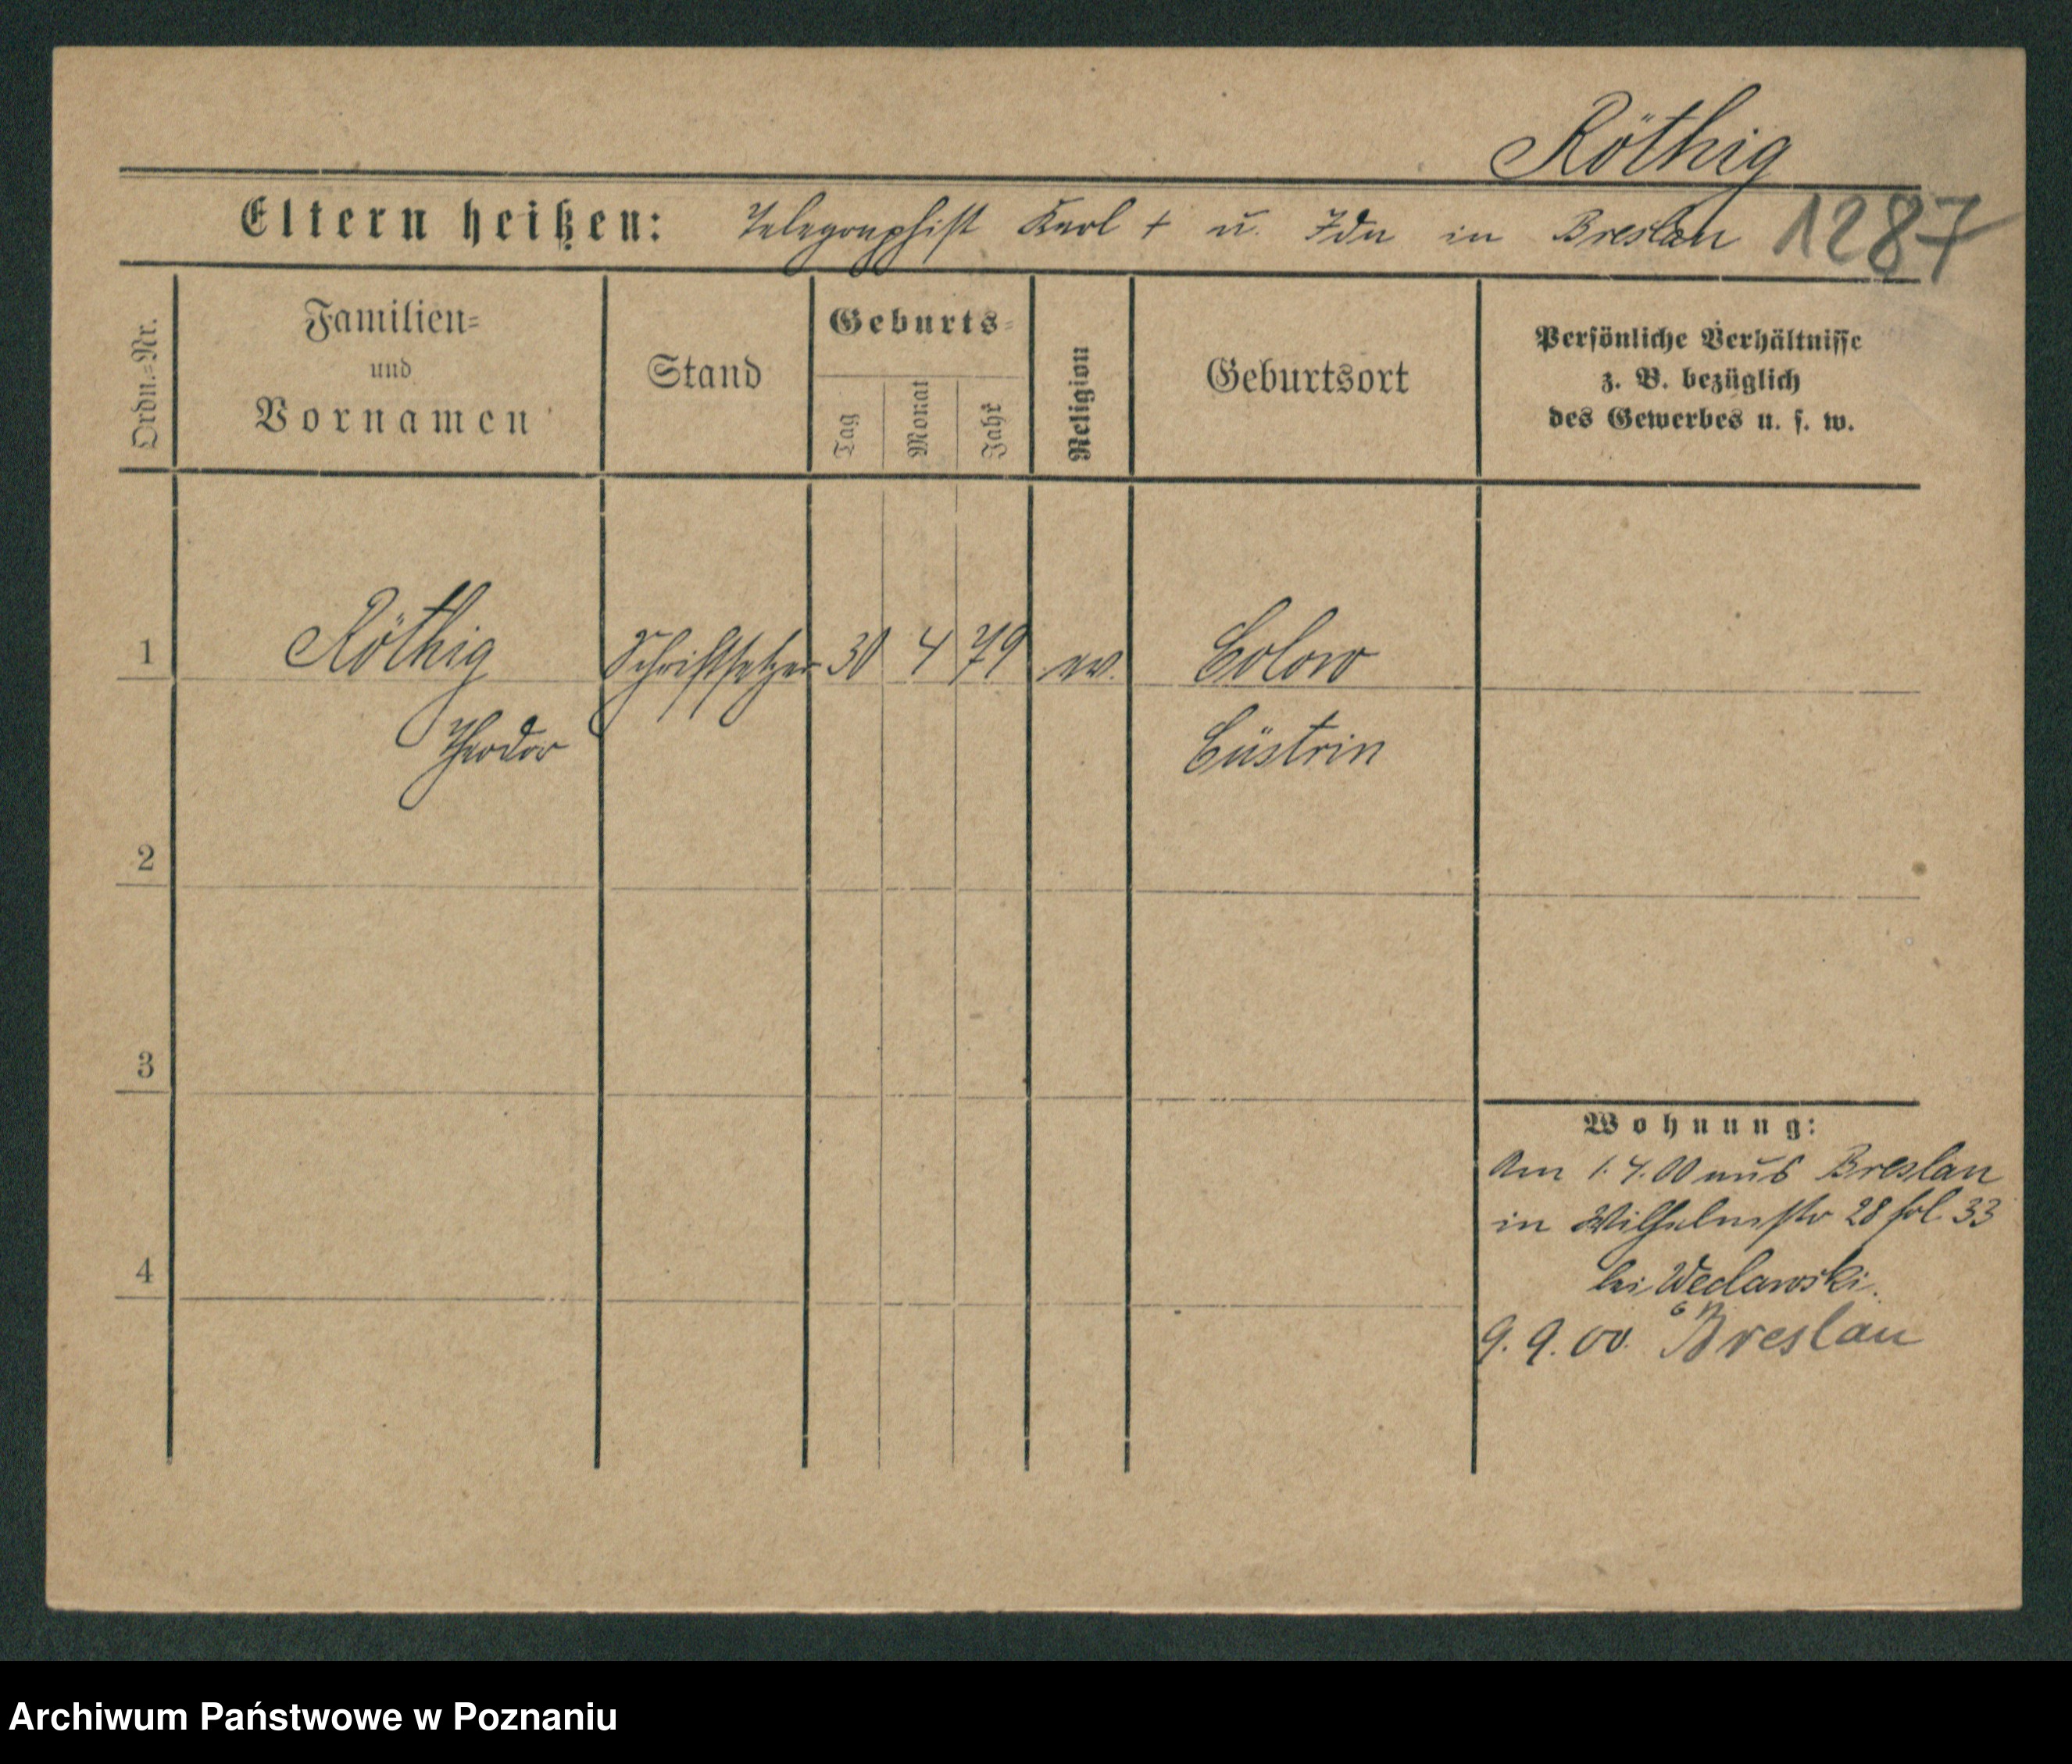 Röthig
Eltern heißen: Telegraphist Karl + u. Ida in Breslau 1287
Ordn.=Nr.
Familien=
und
Vornamen
Stand
Geburts=
Tag
Monat
Jahr
Religion
Geburtsort
Persönliche Verhältnisse
z. B. bezüglich
des Gewerbes u. s. w.
1 Röthig Schriftsetzer 30 4 79 ev.
Theodor Cüstrin
2
3
4
Wohnung:
Am 1.4.00 aus Breslau
in Wilhelmstr 28 33
bei Weclawski.
9. 9. 00. Breslau
Archiwum Państwowe w Poznaniu